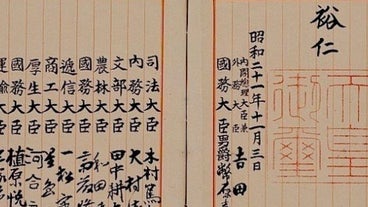 裕仁
天皇
御璽
昭和二十一年十一月三日
內閣總理大臣兼
外務大臣 吉田
國務大臣 男爵 幣原
司法大臣 木村篤
內務大臣 大村
文部大臣 田中耕
農林大臣 和田
國務大臣
遞信大臣 一松
商工大臣 星
厚生大臣 河合
國務大臣 植原悦
運輸大臣